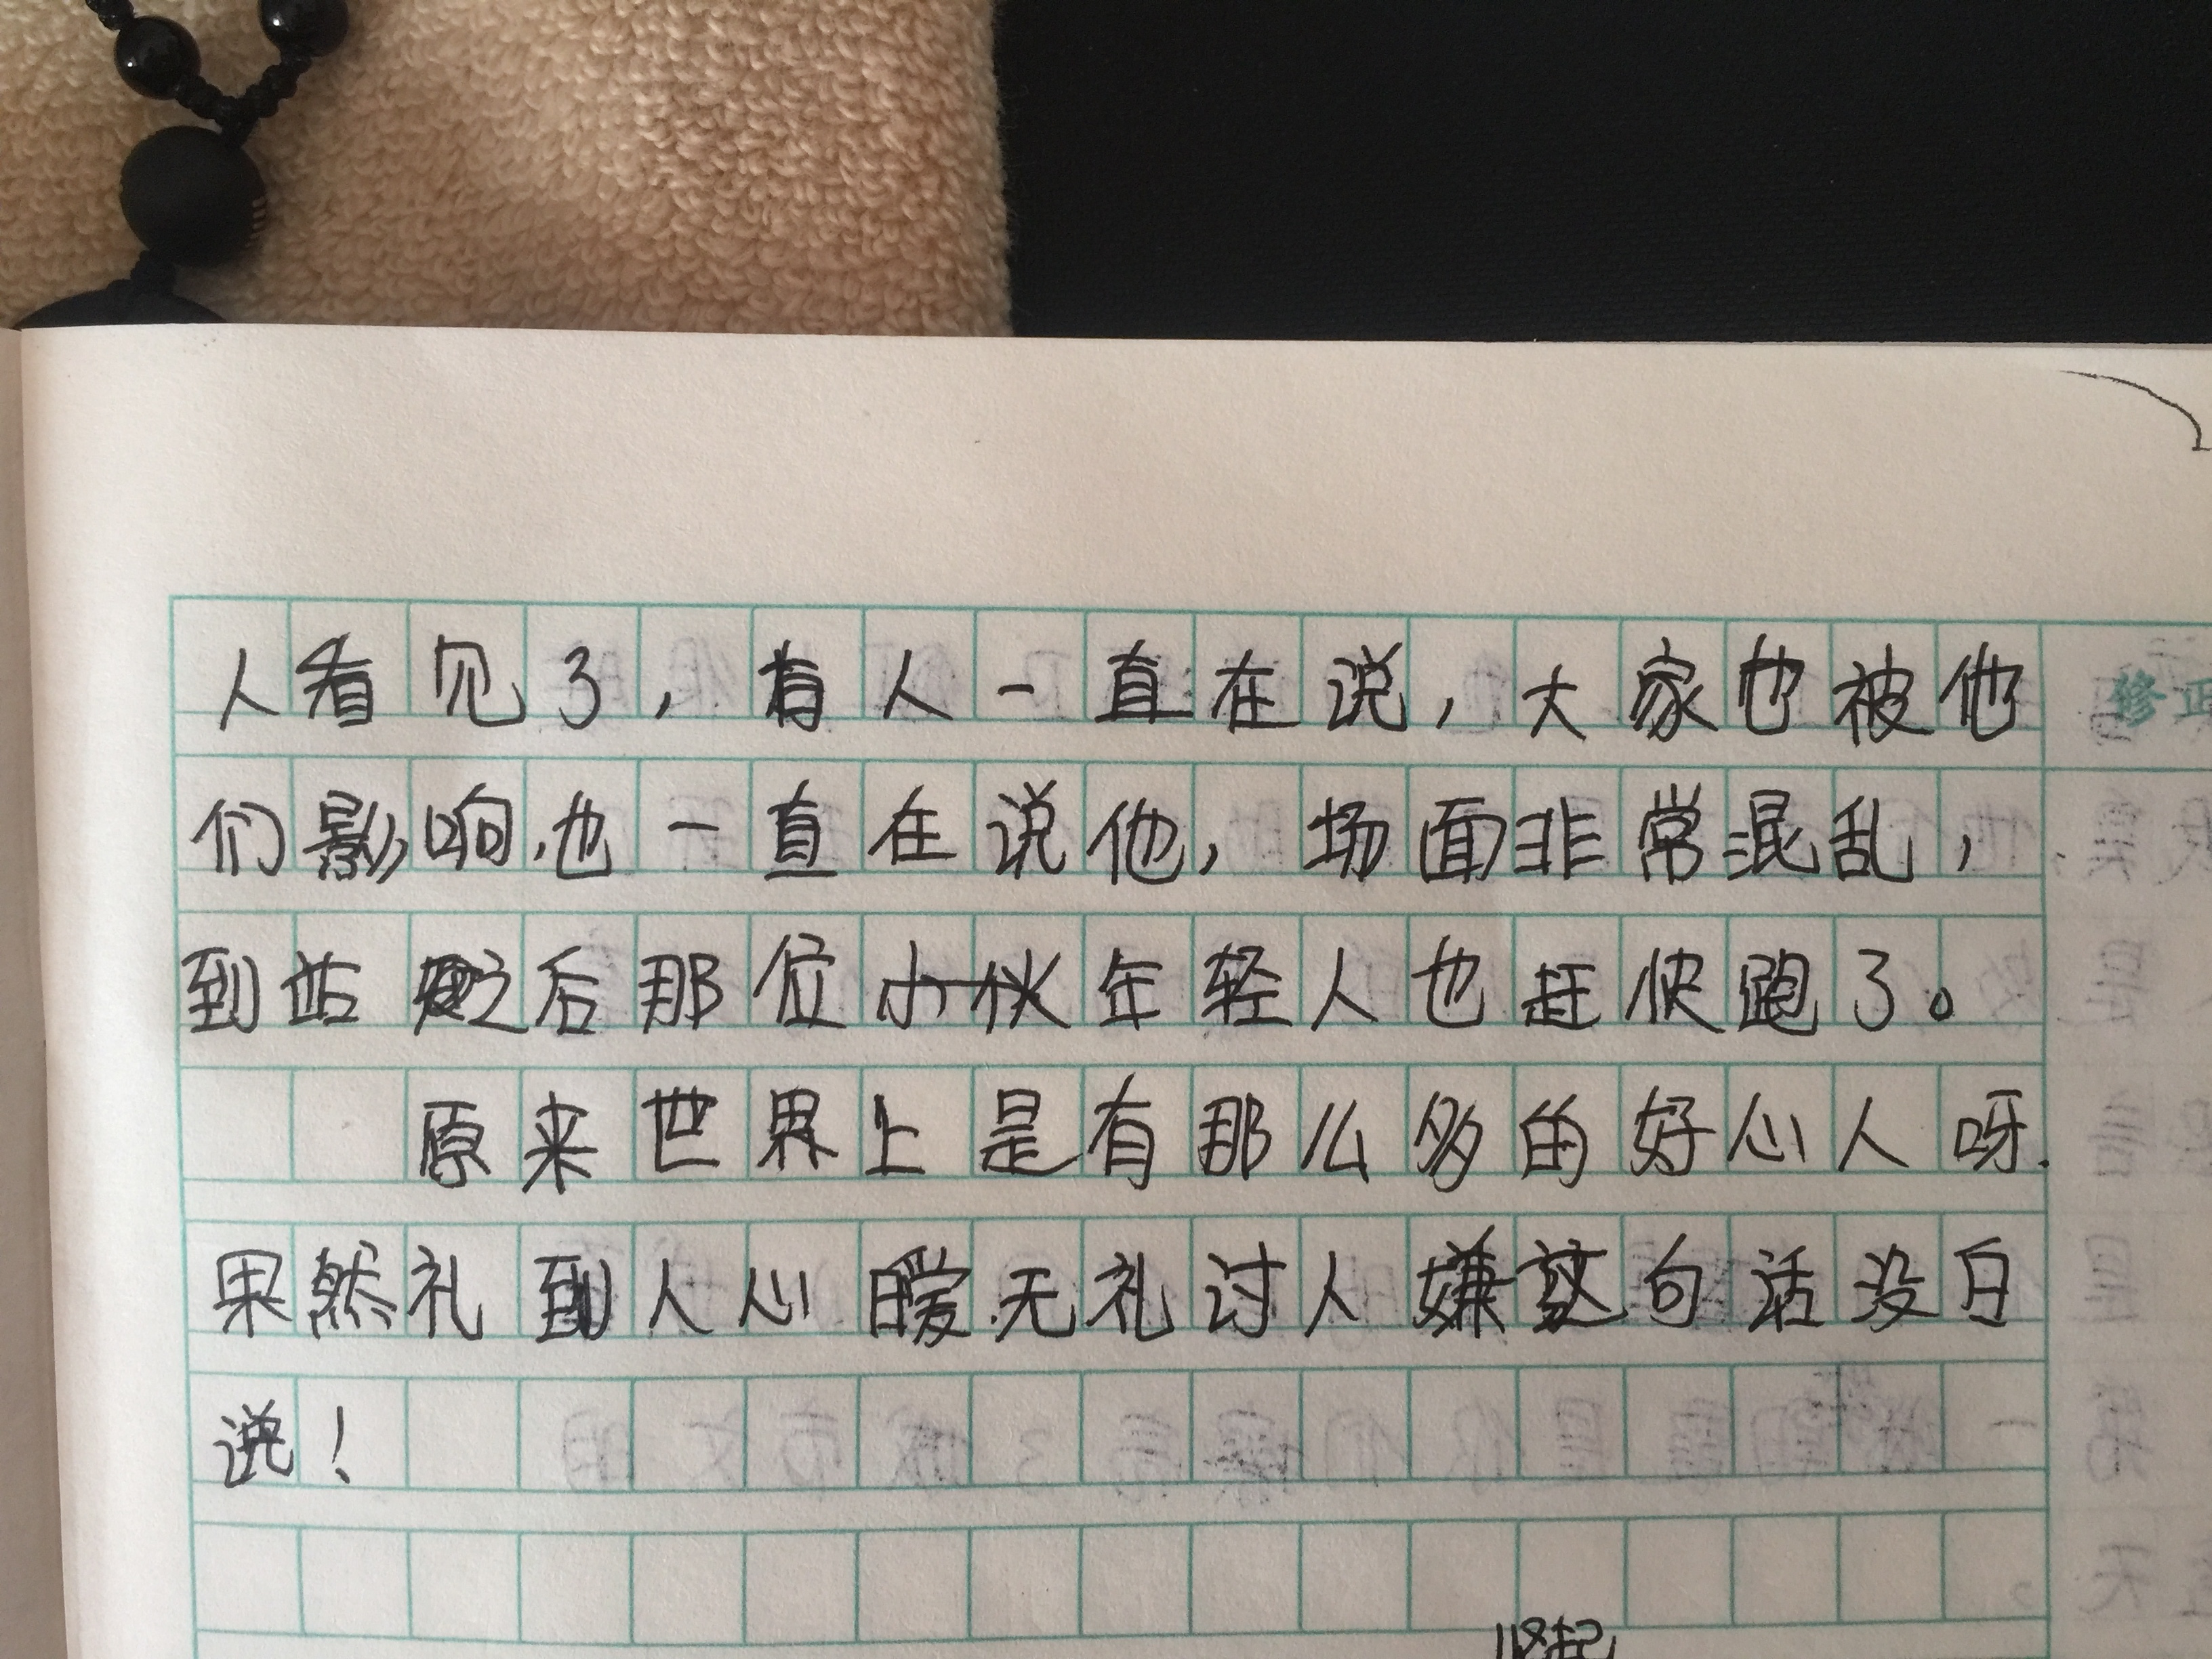 人看见了，有人一直在说，大家也被他
们影响，也一直在说他，场面非常混乱，
到站之后那位年轻人也赶快跑了。
原来世界上是有那么多的好心人呀.
果然礼到人心暖.无礼讨人嫌这句话没白
说！
竖起
修正